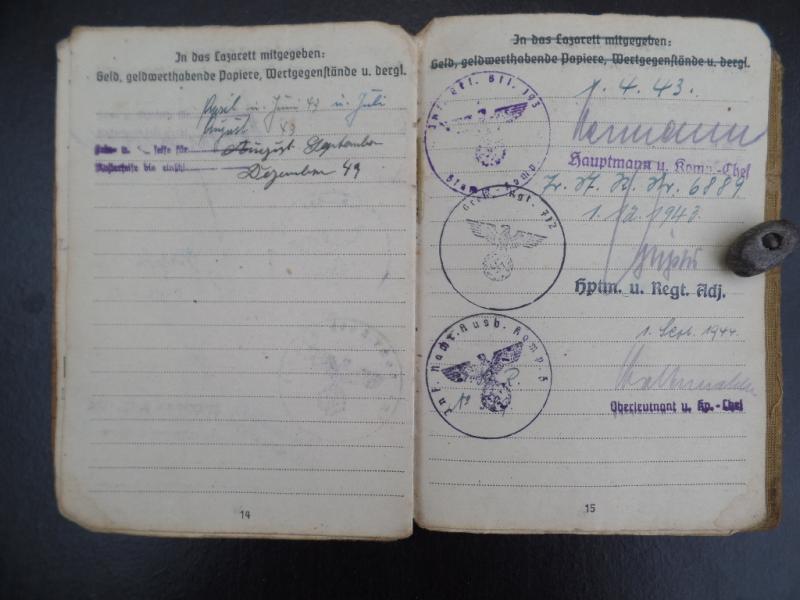 In das Lazarett mitgegeben:
Geld, geldwerthabende Papiere, Wertgegenstände u. dergl.
April u. Juni 43 u. Juli
August 43
Seife für August September
bis einschl. Dezember 43
14
In das Lazarett mitgegeben:
Geld, geldwerthabende Papiere, Wertgegenstände u. dergl.
1. 4. 43.
Hermann
Hauptmann u. Komp.-Chef
Inf. Btl. 193
Stamm-Komp.
Nr. 6889
1.12.1943
Rgt. 712
Hptm. u. Regt. Adj.
1. Sept. 1944
Inf. Nachr. Ausb. Komp.
Oberleutnant u. Kp.-Chef
15